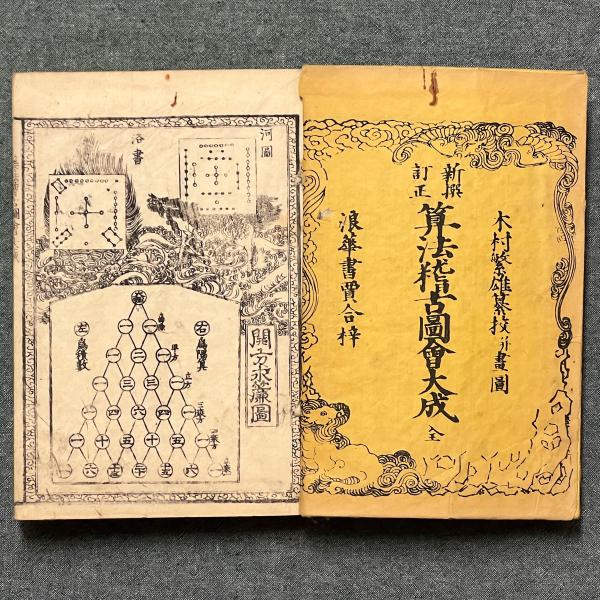 木村繁雄纂校并畫圖
新撰
訂正
算法稽古圖會大成 全
浪華書賈合梓
河圖
洛書
開方求簾圖
右
左
爲積数
一 一
一 二 一
平方
一 三 三 一
立方
一 四 六 四 一
三乗方
一 五 十 十 五 一
一 六 十五 二十 十五 六 一